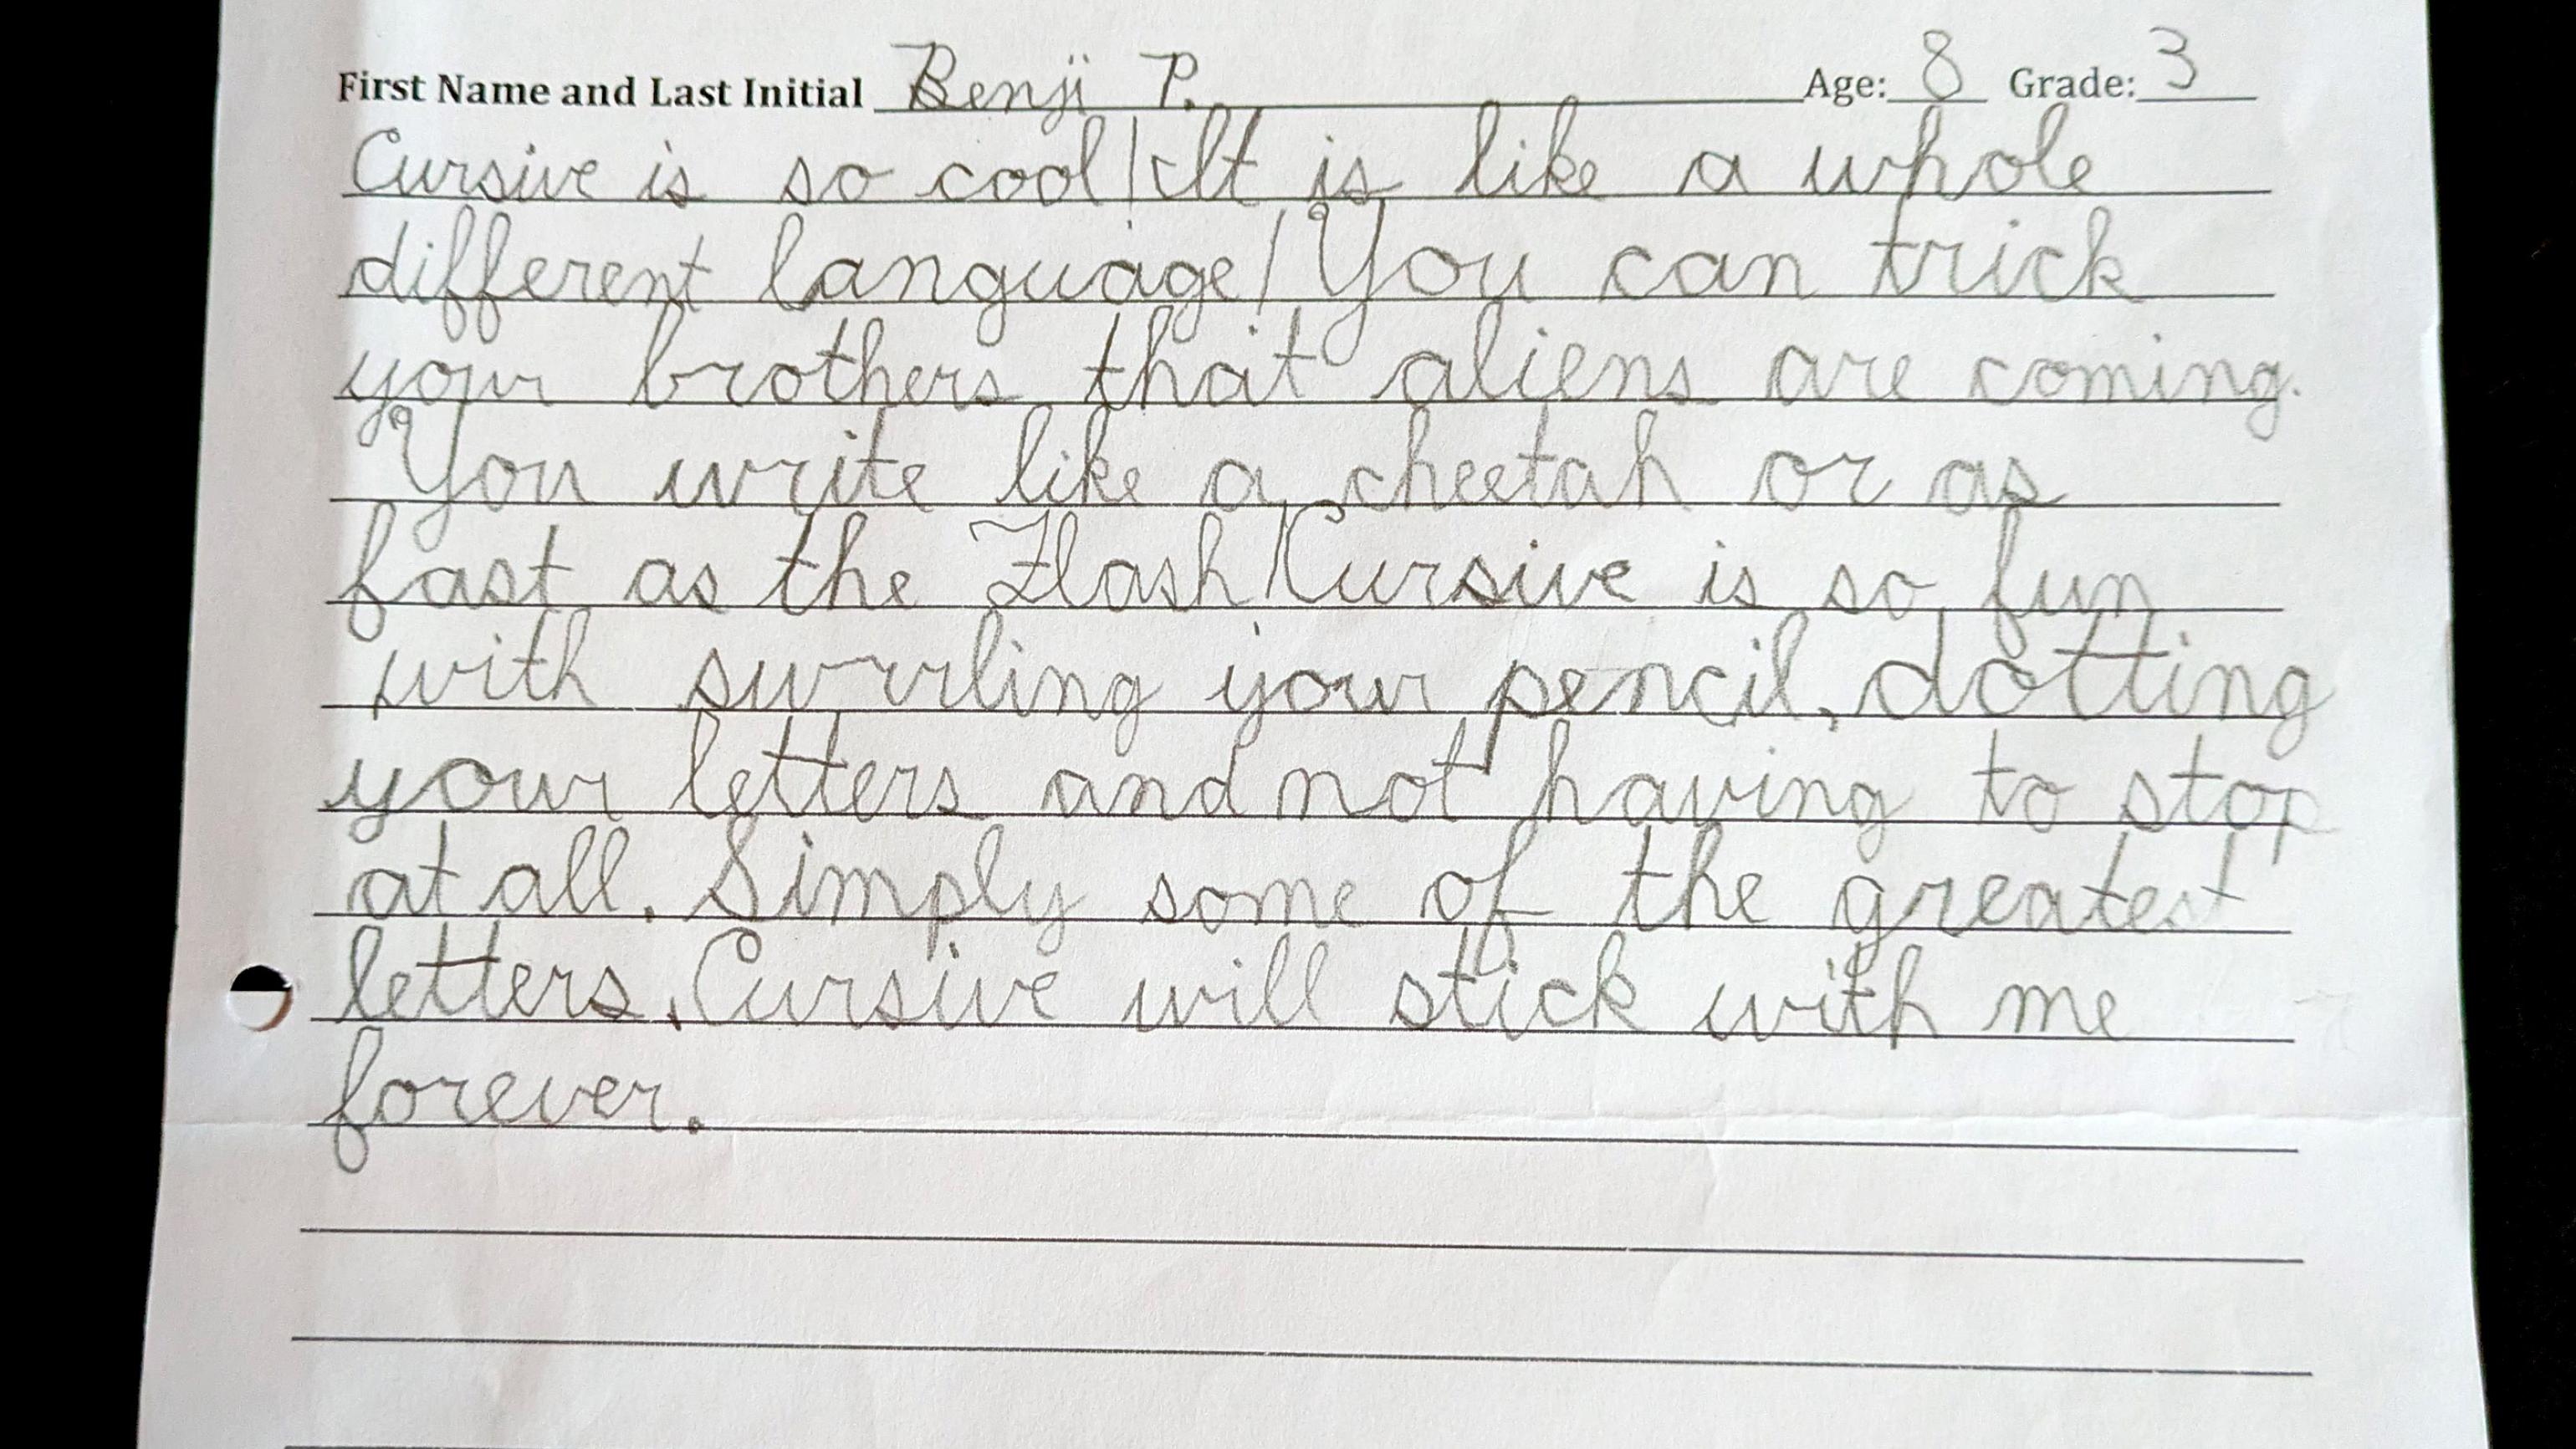 First Name and Last Initial Benji P. Age: 8 Grade: 3
Cursive is so cool! It is like a whole
different language! You can trick
your brothers that aliens are coming.
You write like a cheetah or as
fast as the Flash! Cursive is so fun
with swrrling your pencil, dotting
your letters and not having to stop
at all. Simply some of the greatest
letters. Cursive will stick with me
forever.